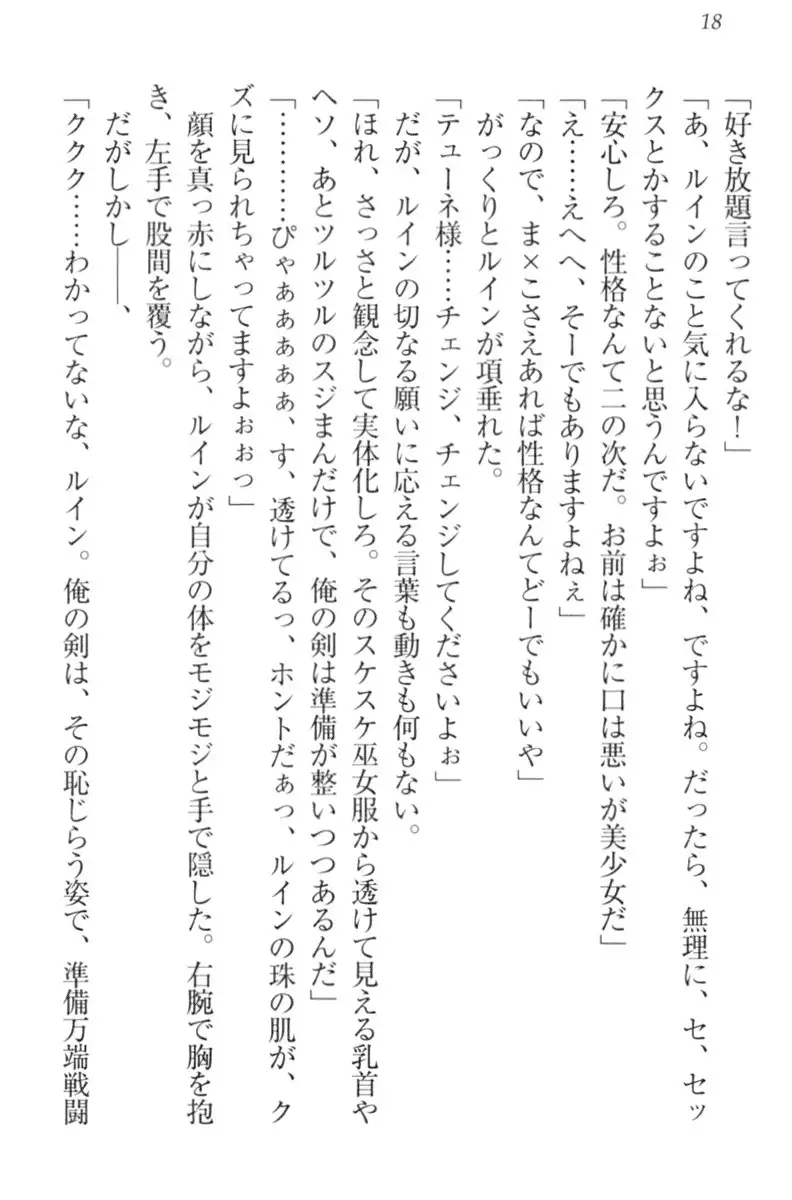 18
「好き放題言ってくれるな！」
「あ、ルインのこと気に入らないですよね、ですよね。だったら、無理に、セ、セッ
クスとかすることないと思うんですよぉ」
「安心しろ。性格なんて二の次だ。お前は確かに口は悪いが美少女だ」
「え……えへへ、そーでもありますよねぇ」
「なので、ま×こさえあれば性格なんてどーでもいいや」
がっくりとルインが項垂れた。
「テューネ様……チェンジ、チェンジしてくださいよぉ」
だが、ルインの切なる願いに応える言葉も動きも何もない。
「ほれ、さっさと観念して実体化しろ。そのスケスケ巫女服から透けて見える乳首や
ヘソ、あとツルツルのスジまんだけで、俺の剣は準備が整いつつあるんだ」
「…………ぴゃぁぁぁぁぁ、す、透けてるっ、ホントだぁっ、ルインの珠の肌が、ク
ズに見られちゃってますよぉぉっ」
顔を真っ赤にしながら、ルインが自分の体をモジモジと手で隠した。右腕で胸を抱
き、左手で股間を覆う。
だがしかし――、
「ククク……わかってないな、ルイン。俺の剣は、その恥じらう姿で、準備万端戦闘